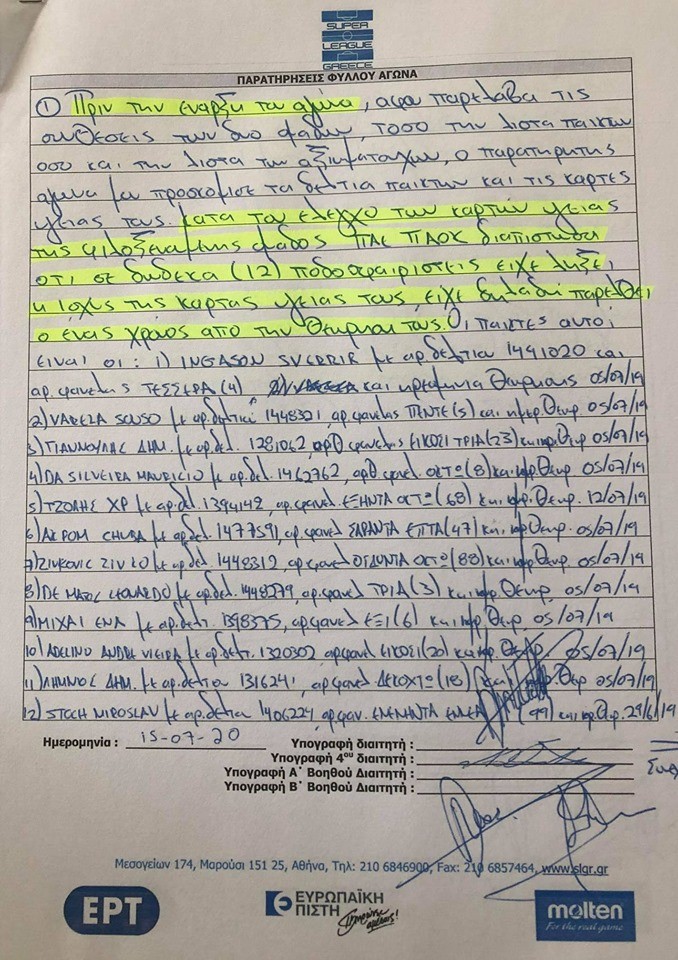 SUPER
LEAGUE
GREECE
ΠΑΡΑΤΗΡΗΣΕΙΣ ΦΥΛΛΟΥ ΑΓΩΝΑ
① Πριν την εναρξη του αγωνα, αφου παρελαβα τις
συνθεσεις των δυο ομαδων, τοσο την λιστα παικτων
οσο και την λιστα των αξιωματουχων, ο παρατηρητης
αγωνα μου προσκομισε τα δελτια παικτων και τις καρτες
υγειας τους. κατα τον ελεγχο των καρτων υγειας
της φιλοξενουμενης ομαδος ΠΑΕ ΠΑΟΚ διαπιστωθη
οτι σε δωδεκα (12) ποδοσφαιριστεις ειχε ληξει
η ισχυς της καρτας υγειας τους, ειχε δηλαδη παρελθει
ο ενας χρονος απο την θεωρηση τους. Οι παικτες αυτοι
ειναι οι: 1) INGASON SVERRIR με αρ.δελτιου 1491020 και
αρ. φανελας ΤΕΣΣΕΡΑ (4) και ημερομηνια θεωρησης 05/07/19
2) VARELA SOUSO με αρ.δελτιου 1448321, αρ.φανελας ΠΕΝΤΕ (5) και ημερ.θεωρ. 05/07/19
3) ΓΙΑΝΝΟΥΛΗΣ ΔΗΜ. με αρ.δελ. 1281062, αριθ φανελας ΕΙΚΟΣΙ ΤΡΙΑ (23) και ημερ.θεωρ. 05/07/19
4) DA SILVEIRA MAURICIO με αρ.δελ. 1462762, αριθ.φανελ. ΟΚΤΩ (8) και ημερ.θεωρ. 05/07/19
5) ΤΖΟΛΗΣ ΧΡ με αρ.δελ. 1394142, αρ.φανελ. ΕΞΗΝΤΑ ΟΚΤΩ (68) και ημερ.θεωρ. 12/07/19
6) AKPOM CHUBA με αρ.δελ. 1477591, αρ.φανελ ΣΑΡΑΝΤΑ ΕΠΤΑ (47) και ημερ.θεωρ. 05/07/19
7) ZIVKOVIC ZIVKO με αρ.δελ. 1448312, αρ.φανελ ΟΓΔΟΝΤΑ ΟΚΤΩ (88) και ημερ.θεωρ. 05/07/19
8) DE MATOS LEONARDO με αρ.δελ. 1448279, αρ.φανελ. ΤΡΙΑ (3) και ημερ.θεωρ. 05/07/19
9) MIXAI ENA με αρ.δελτ. 1398375, αρ.φανελ ΕΞΙ (6) και ημερ.θεωρ. 05/07/19
10) ADELINO ANDRE VIEIRA με αρ.δελτ. 1320302 αρ.φανελ ΕΙΚΟΣΙ (20) και ημερ. 05/07/19
11) ΛΗΜΝΙΟΣ ΔΗΜ. με αρ.δελτιου 131624, αρ.φανελ ΔΕΚΟΧΤΩ (18) και ημερ.θεωρ 05/07/19
12) STOCH MIROSLAV με αρ.δελτιου 1406224 αρ.φαν. ΕΝΕΝΗΝΤΑ ΕΝΝΕΑ (99) και ημερ.θεωρ. 29/6/19
Ημερομηνία : 15-07-20 Υπογραφή διαιτητή :
Υπογραφή 4ου διαιτητή :
Υπογραφή Α΄ Βοηθού Διαιτητή :
Υπογραφή Β΄ Βοηθού Διαιτητή :
Μεσογείων 174, Μαρούσι 151 25, Αθήνα, Τηλ: 210 6846900, Fax: 210 6857464, www.slgr.gr
ΕΡΤ
ΕΥΡΩΠΑΪΚΗ
ΠΙΣΤΗ
molten
For the real game